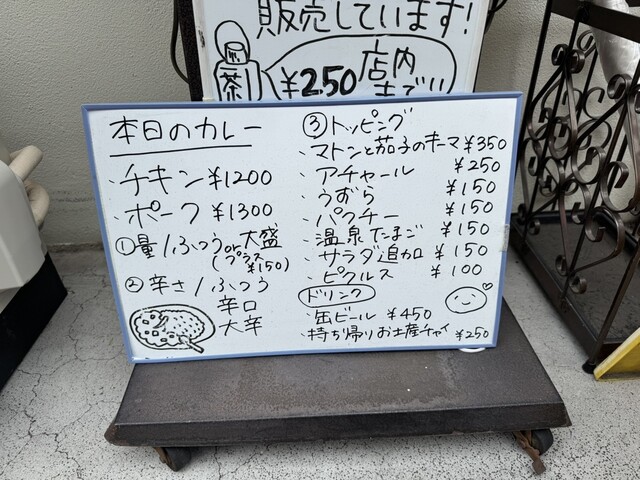 販売しています!
茶
¥250 店内
まで!!
本日のカレー
・チキン ¥1200
・ポーク ¥1300
① 量/ふつう or 大盛
(プラス ¥150)
② 辛さ/ふつう
辛口
大辛
③ トッピング
・マトンと茄子のキーマ ¥350
・アチャール ¥250
・うずら ¥150
・パクチー ¥150
・温泉たまご ¥150
・サラダ追加 ¥150
・ピクルス ¥100
ドリンク
・缶ビール ¥450
・持ち帰りお土産チャイ ¥250